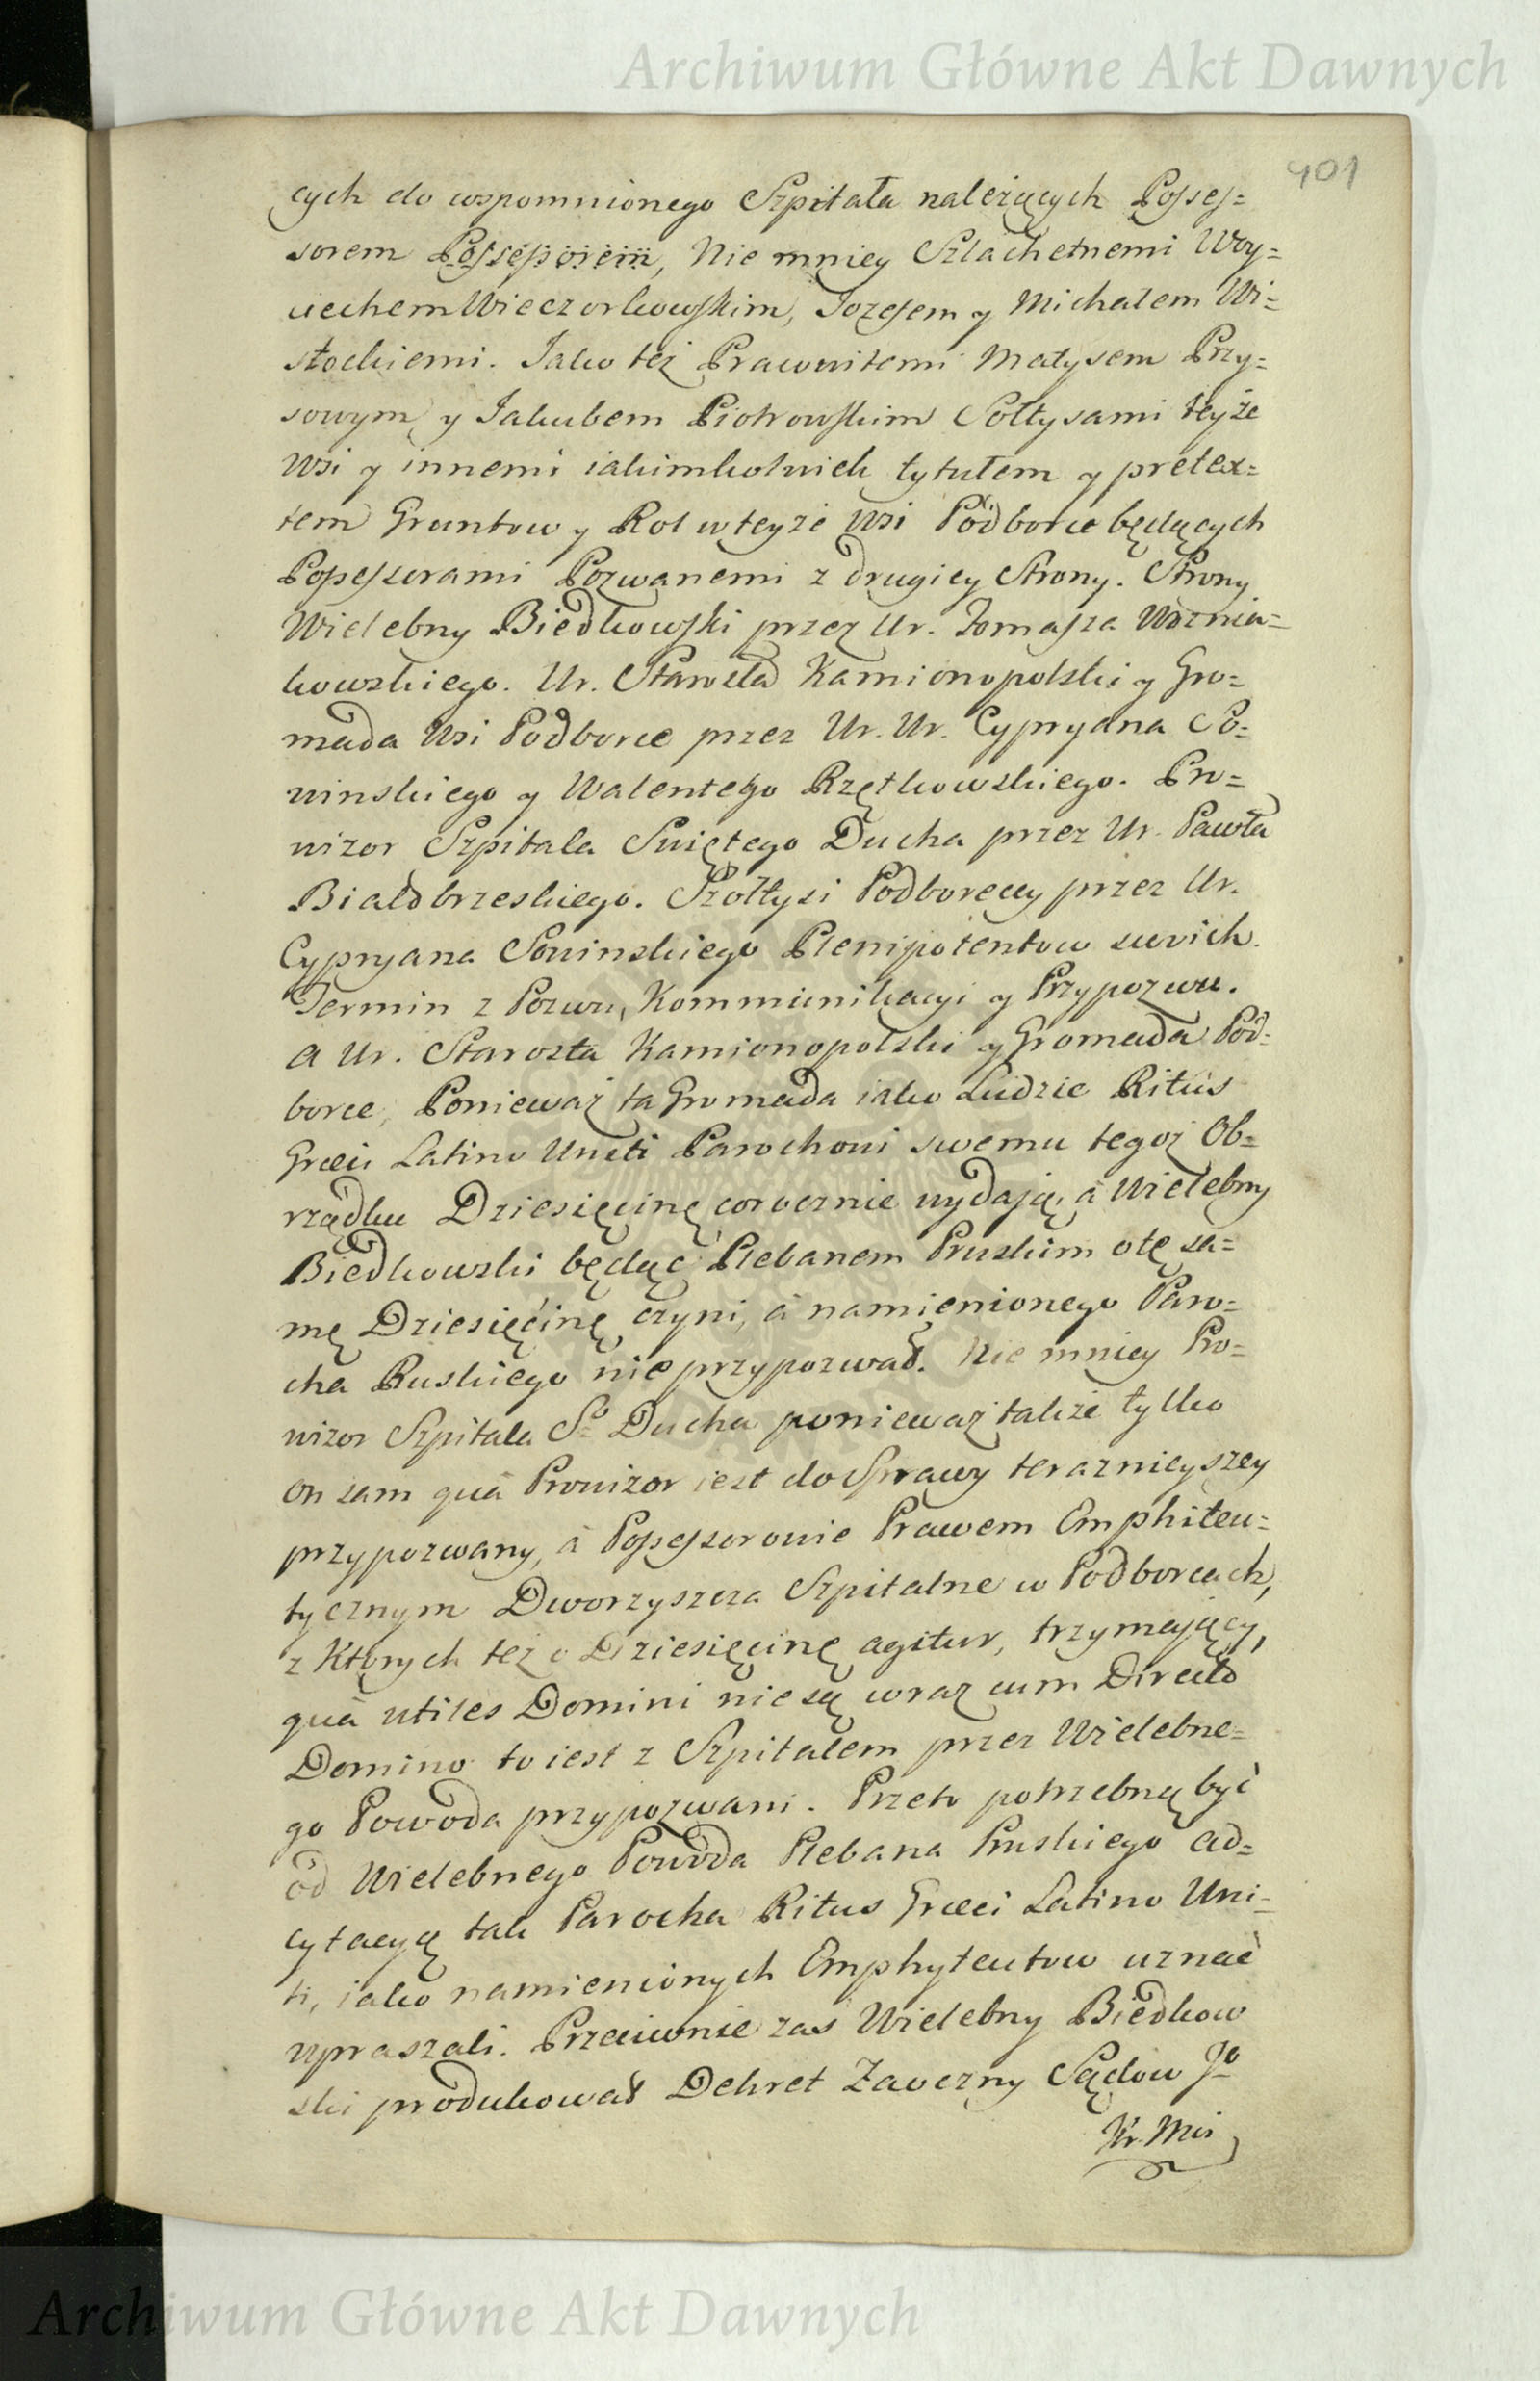 Archiwum Główne Akt Dawnych
401
cych do wspomnionego Szpitala należących Posses=
sorem Possessorem, Nie mniey Szlachetnemi Woy=
ciechem Wieczorkowskim, Jozefem y Michałem Wi=
słockiemi. Jako też Prawnitemi Matysem Przy=
sowym y Jakubem Piotrowskim Sołtysami teyże
Wsi y innemi iakimkolwiek tytułem y pretex=
tem Gruntow y Rol w teyże Wsi Podborce będących
Possessorami Pozwanemi z drugiey Strony. Strony
Wielebny Biedkowski przez Ur. Tomasza Woznia=
kowskiego. Ur. Starosta Kamionopolski y Gro=
mada Wsi Podborce przez Ur. Ur. Cypryana So=
winskiego y Walentego Rzętkowskiego. Pro=
wizor Szpitala Swiętego Ducha przez Ur. Pawła
Białobrzeskiego. Szołtysi Podboreccy przez Ur.
Cypryana Sowinskiego Plenipotentow swoich.
Termin z Pozwu, Kommunikacyi y Przypozwu.
A Ur. Starosta Kamionopolski y Gromada Pod=
borce, Ponieważ ta Gromada iako Ludzie Ritus
Græci Latino Uniti Parochowi swemu tegoż Ob=
rządku Dziesięcinę corocznie wydaią, à Wielebny
Biedkowski będąc Plebanem Pruskim o tę sa=
mę Dziesięcinę czyni, à namienionego Paro=
cha Ruskiego nie przypozwał. Nie mniey Pro=
wizor Szpitala Sº Ducha ponieważ także tylko
on sam quà Prowizor iest do Sprawy teraznieyszey
przypozwany, à Possessorowie Prawem Emphiteu=
tycznym Dworzyszcza Szpitalne w Podborcach,
z Ktorych też o Dziesięcinę agitur, trzymaiący,
quà utiles Domini nie są wraz cum Directo
Domino to iest z Szpitalem przez Wielebne=
go Powoda przypozwani. Przeto potrzebną być
od Wielebnego Powoda Plebana Pruskiego ad=
cytacyą tak Parocha Ritus Græci Latino Uni=
ti, iako namienionych Emphyteutow uznać
upraszali. Przeciwnie zaś Wielebny Biedkow
ski produkował Dekret Zaoczny Sądow Jº
Kr. Mci
Archiwum Główne Akt Dawnych